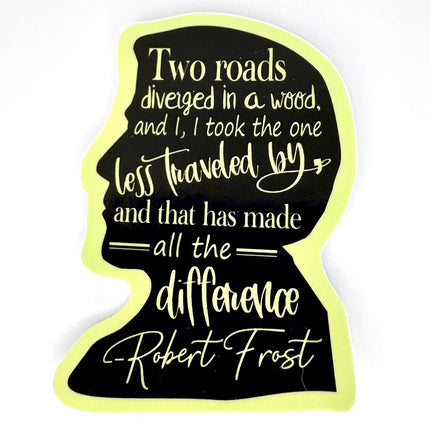 Two roads
diverged in a wood,
and I, I took the one
less traveled by
and that has made
all the
difference
-Robert Frost